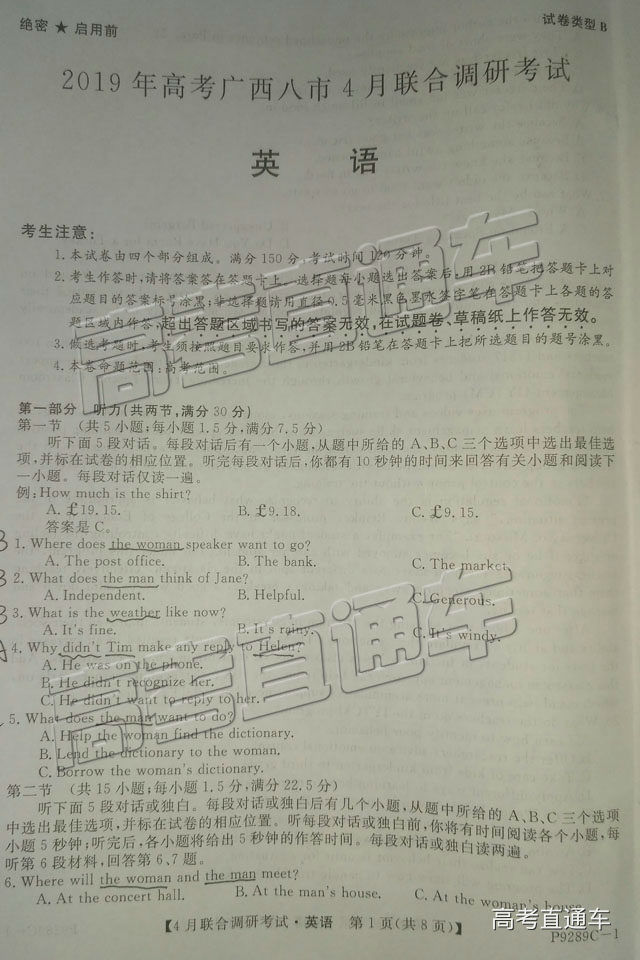 绝密 ★ 启用前
试卷类型 B
2019 年高考广西八市 4 月联合调研考试
英 语
考生注意：
1. 本试卷由四个部分组成。满分 150 分，考试时间 120 分钟。
2. 考生作答时，请将答案答在答题卡上。选择题每小题选出答案后，用 2B 铅笔把答题卡上对
应题目的答案标号涂黑；非选择题请用直径 0.5 毫米黑色墨水签字笔在答题卡上各题的答
题区域内作答，超出答题区域书写的答案无效，在试题卷、草稿纸上作答无效。
3. 做选考题时，考生须按照题目要求作答，并用 2B 铅笔在答题卡上把所选题目的题号涂黑。
4. 本卷命题范围：高考范围。
第一部分 听力（共两节，满分 30 分）
第一节 （共 5 小题；每小题 1.5 分，满分 7.5 分）
听下面 5 段对话。每段对话后有一个小题，从题中所给的 A、B、C 三个选项中选出最佳选
项，并标在试卷的相应位置。听完每段对话后，你都有 10 秒钟的时间来回答有关小题和阅读下
一小题。每段对话仅读一遍。
例：How much is the shirt?
A. ￡19. 15. B. ￡9. 18. C. ￡9. 15.
答案是 C。
B 1. Where does the woman speaker want to go?
A. The post office. B. The bank. C. The market.
2. What does the man think of Jane?
A. Independent. B. Helpful. C. Generous.
3. What is the weather like now?
A. It's fine. B. It's rainy. C. It's windy.
A 4. Why didn't Tim make any reply to Helen?
A. He was on the phone.
B. He didn't recognize her.
C. He didn't want to reply to her.
5. What does the man want to do?
A. Help the woman find the dictionary.
B. Lend the dictionary to the woman.
C. Borrow the woman's dictionary.
第二节 （共 15 小题；每小题 1.5 分，满分 22.5 分）
听下面 5 段对话或独白。每段对话或独白后有几个小题，从题中所给的 A、B、C 三个选项
中选出最佳选项，并标在试卷的相应位置。听每段对话或独白前，你将有时间阅读各个小题，每
小题 5 秒钟；听完后，各小题将给出 5 秒钟的作答时间。每段对话或独白读两遍。
听第 6 段材料，回答第 6、7 题。
6. Where will the woman and the man meet?
A. At the concert hall. B. At the man's house. C. At the woman's house.
【4 月联合调研考试·英语 第 1 页（共 8 页）】
P9289C－1
高考直通车
高考直通车
高考直通车